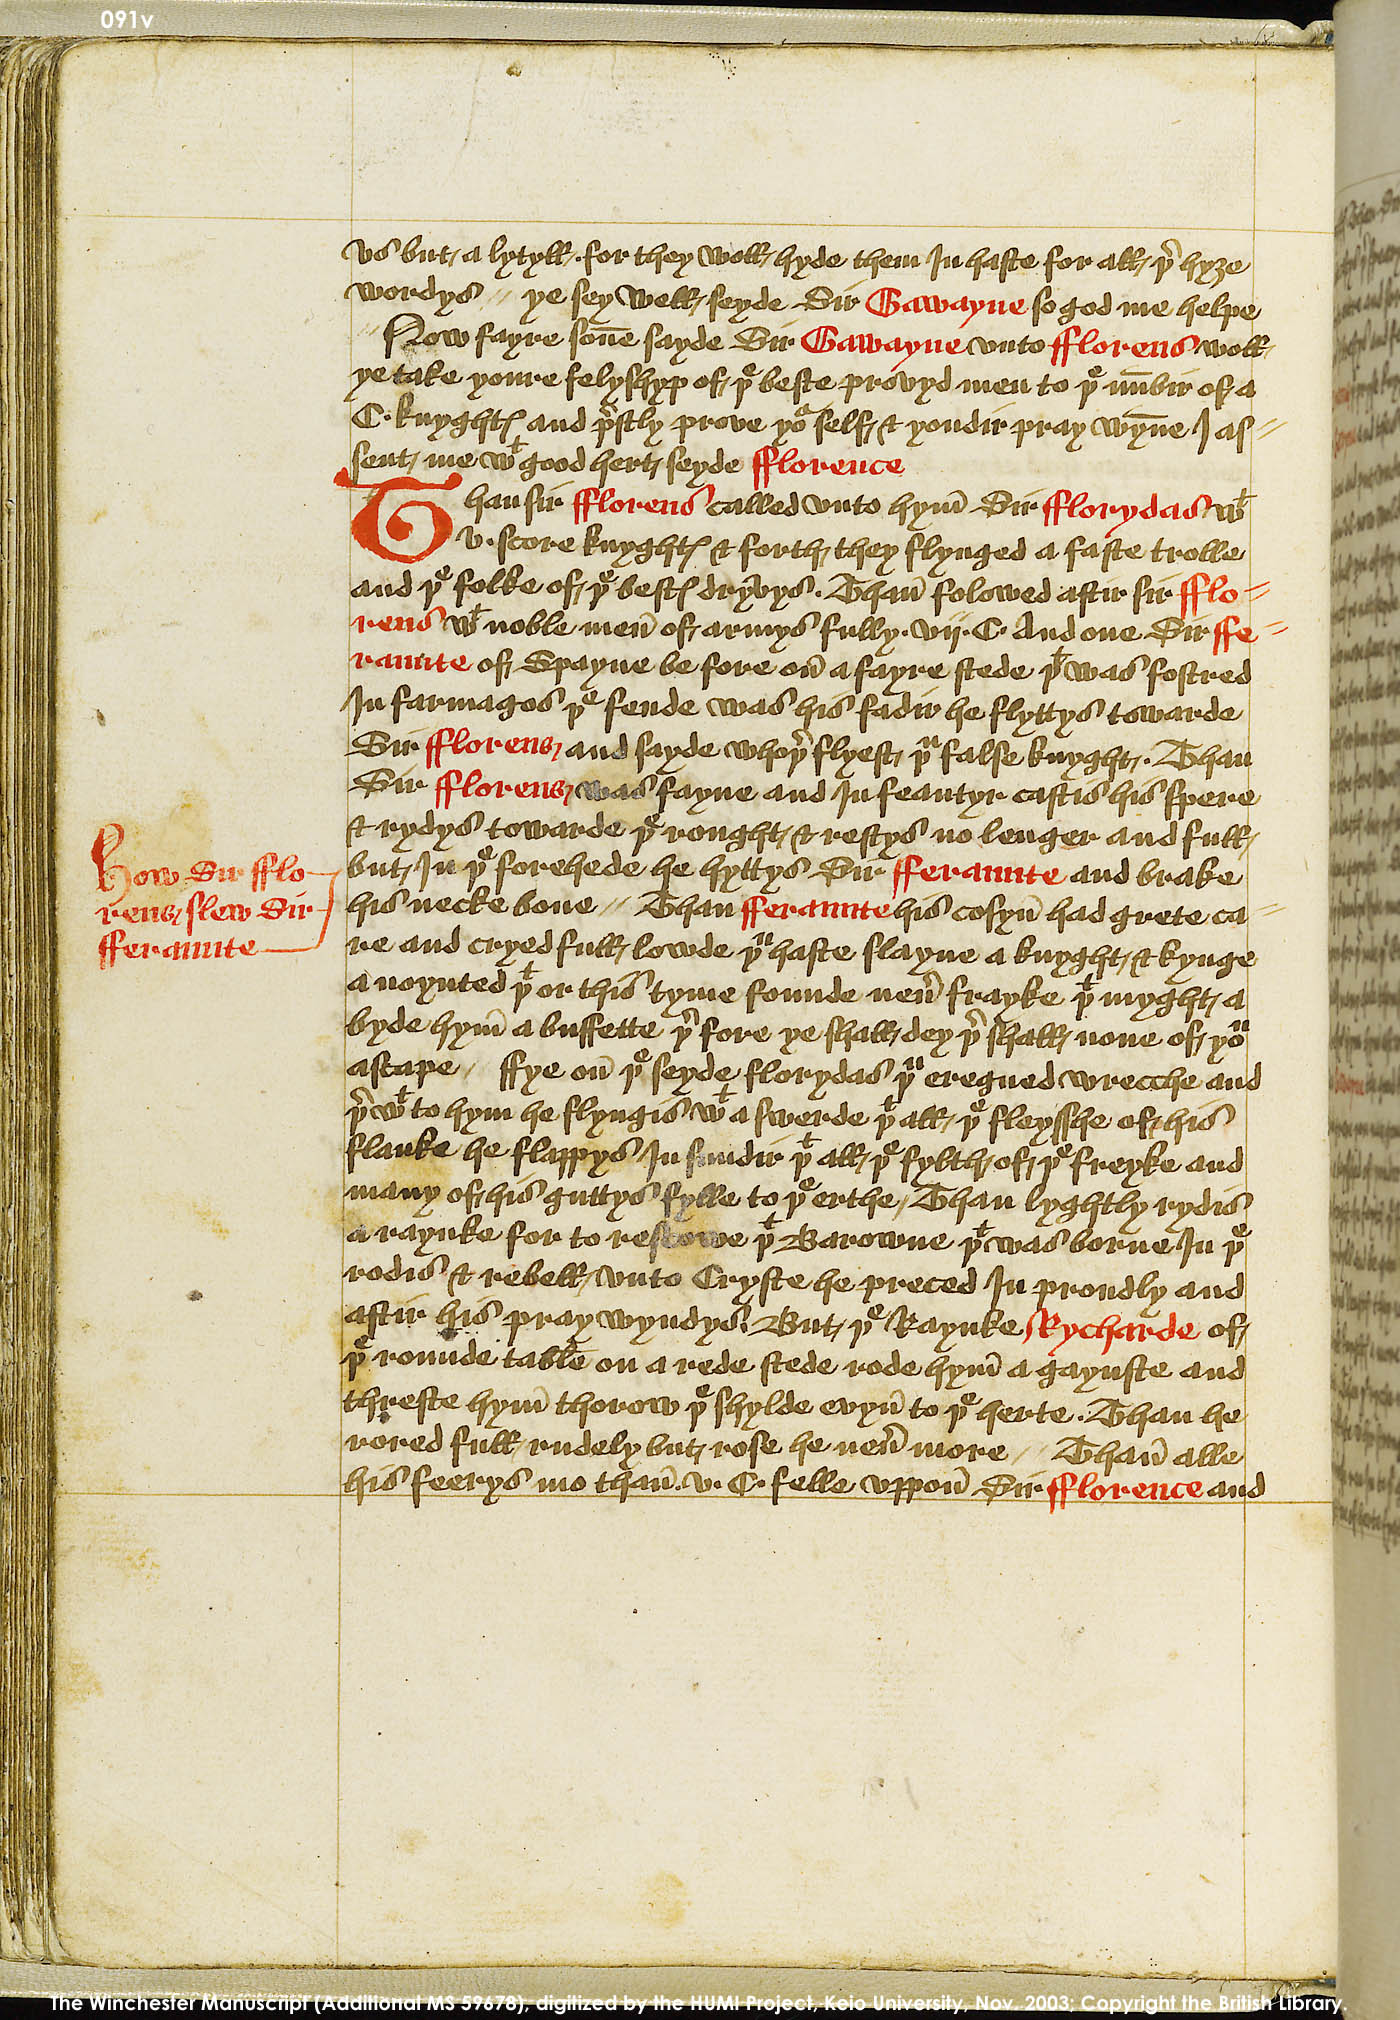 091v
vs but a lytyll · for they woll hyde them In haste for all þr hyȝe
wordys // ye sey well seyde Sir Gawayne so god me helpe
// Now fayre son̄e sayde Sir Gawayne vnto fflorens woll
ye take youre felyshyp of þe beste provyd men to þe nūbir of a
C · knyghtꝭ and prstly prove yor self & yondir pray wyn̄e I as=
sent me wt good hert seyde fflorence
Than sir fflorens called vnto hym̄ Sir fflorydas wt
v · score knyghtꝭ & forth they flynged a faste trotte
and þe folke of þe bestꝭ dryvys · Than̄ folowed aftir sir fflo=
rens wt noble men̄ of armys fully · vij · C · And one Sir ffe=
raunte of Spayne be fore on̄ a fayre stede þt was fostred
In farmagos þe fende was his fadir he flyttys towarde
Sir fflorens and sayde whoþr flyest þu false knyght · Than
Sir fflorens was fayne and In feautyr castis his spere
& rydys towarde þe rought & restys no lenger and full
but In þe forehede he hyttys Sir fferaunte and brake
his necke bone // Than fferaunte his cosyn̄ had grete ca=
re and cryed full lowde þu haste slayne a knyght & kynge
a noynted þt or this tyme founde neūr frayke þt myght a
byde hym̄ a buffette þr fore ye shall dey þr shall none of you
ascape / ffye on̄ þe seyde florydas þu eregned wrecche and
þr wt to hym he flyngis wt a swerde þt all þe fleysshe of his
flanke he flappys In sundir þt all þe fylth of þe freyke and
many of his guttys fylle to þe erthe / Than lyghtly rydis
a raynke for to rescowe þt Barowne þt was borne In þe
rodis & rebell vnto Cryste he preced In proudly and
aftir his pray wyndys · But þe Raynke Rycharde of
þe rounde table on a rede stede rode hym̄ a gaynste and
threste hym̄ thorow þe shylde evyn̄ to þe herte · Than he
rored full rudely but rose he neūr more // Than̄ alle
his feerys mo than̄ · v · C · felle vppon̄ Sir fflorence and
How Sir fflo
rens slew Sir
fferaunte
The Winchester Manuscript (Additional MS 59678), digitized by the HUMI Project, Keio University, Nov. 2003; Copyright the British Library.